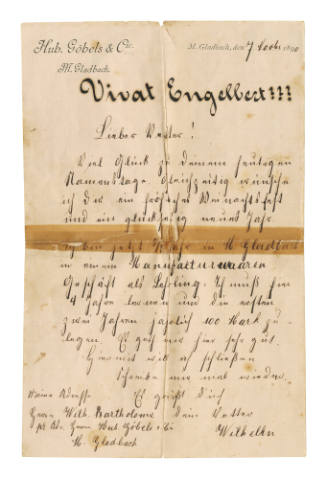 Hub. Göbels & Cie.
M. Gladbach.
M. Gladbach, den 7 1890
Vivat Engelbert!!!
Lieber Vetter!
Viel Glück zu deinem heutigen
Namenstage. Gleichzeitig wünsche
ich dir ein fröhliches Weihnachtsfest
und ein glückseliges neues Jahr.
Ich bin jetzt in M. Gladbach
in einem Manufakturwaaren
Geschäft als Lehrling. Ich muß hier
4 Jahre lernen und die ersten
zwei Jahren jährlich 100 Mark zu-
legen. Es geht mir hier sehr gut.
Hiermit will ich schließen
Schreibe mir mal wieder.
Es grüßt Dich
Meine Adresse
dein Vetter
Herrn Wilh. Bartholome
Wilhelm
pr. Ad. Herrn Hub. Göbels & Cie
M. Gladbach